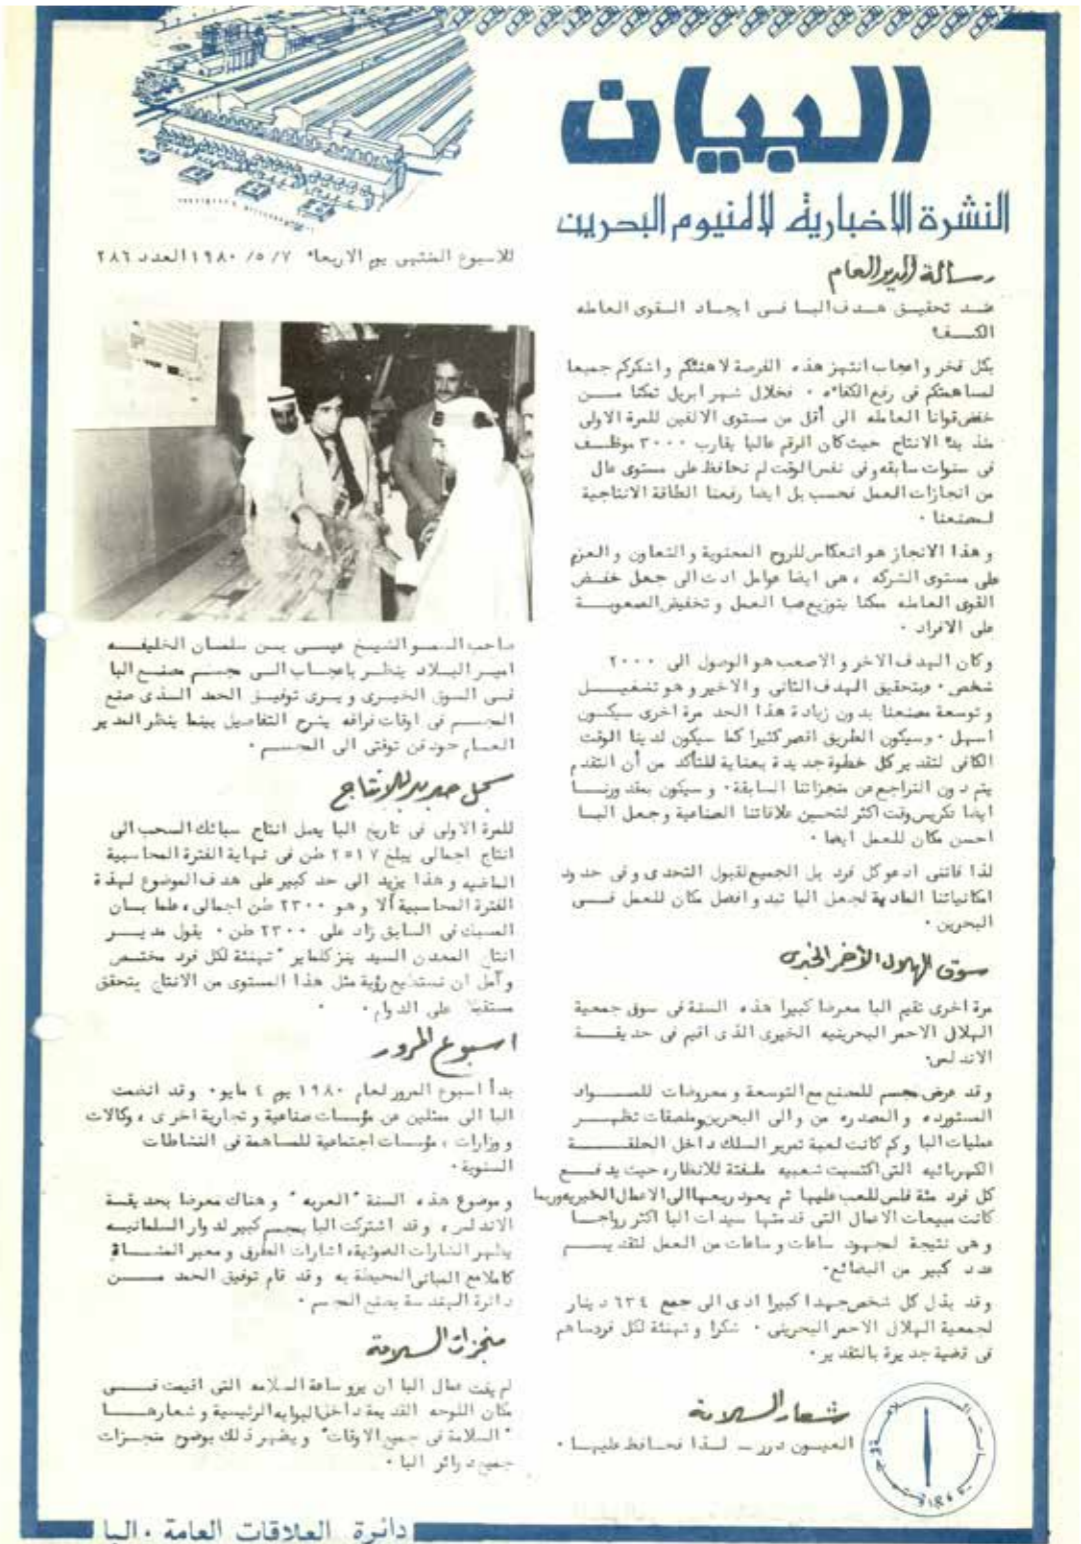 البيان
النشرة الاخبارية لالمنيوم البحرين
للاسبوع المنتهى يوم الاربعاء ١٩٨٠/٥/٧ العدد ٢٨٦
رسالة المدير العام
تحقيق هدف البا فى ايجاد القوى العامله
الكفء
بكل فخر واعجاب انتهز هذه الفرصة لاهنئكم واشكركم جميعا
لمساهمتكم فى رفع الكفاءه ٠ فخلال شهر ابريل تمكنا من
خفض قوانا العامله الى أقل من مستوى الالفين للمرة الاولى
منذ بدء الانتاج حيث كان الرقم عاليا يقارب ٣٠٠٠ موظف
فى سنوات سابقه وفى نفس الوقت لم نحافظ على مستوى عال
من انجازات العمل فحسب بل ايضا رفعنا الطاقة الانتاجية
لمصنعنا ٠
وهذا الانجاز هو انعكاس للروح المعنوية والتعاون والعزم
على مستوى الشركه ، هى ايضا عوامل ادت الى جعل خفض
القوى العامله ممكنا بتوزيع العمل وتخفيض الصعوبة
على الافراد ٠
وكان الهدف الاخر والاصعب هو الوصول الى ٢٠٠٠
شخص ٠ فبتحقيق الهدف الثانى والاخير وهو تشغيل
وتوسعة مصنعنا بدون زيادة هذا الحد مرة اخرى سيكون
اسهل ٠ وسيكون الطريق اقصر كثيرا كما سيكون لدينا الوقت
الكافى لتقدير كل خطوة جديدة بعناية للتأكد من أن التقدم
يتم دون التراجع عن منجزاتنا السابقة ٠ وسيكون بمقدورنا
ايضا تكريس وقت اكثر لتحسين علاقاتنا الصناعية وجعل البا
احسن مكان للعمل ايضا ٠
لذا فاننى ادعو كل فرد بل الجميع لقبول التحدى وفى حدود
امكانياتنا المادية لجعل البا تبدو افضل مكان للعمل فى
البحرين ٠
سوق الهلال الأحمر الخيرى
مرة اخرى تقيم البا معرضا كبيرا هذه السنة فى سوق جمعية
الهلال الاحمر البحرينيه الخيرى الذى اقيم فى حديقة
الاندلس ٠
وقد عرض مجسم للمصنع مع التوسعة ومعروضات للمواد
المستورده والمصدره من والى البحرين وملصقات تظهر
عمليات البا وكم كانت لعبة تمرير السلك داخل الحلقة
الكهربائيه التى اكتسبت شعبيه ملفتة للانظار ، حيث يدفع
كل فرد مئة فلس للعب عليها ثم يعود ريعها الى الاعمال الخيريه وربما
كانت مبيعات الاعمال التى قدمتها سيدات البا اكثر رواجا
وهى نتيجة لجهود ساعات وساعات من العمل لتقديم
عدد كبير من البضائع ٠
وقد بذل كل شخص جهدا كبيرا ادى الى جمع ٦٣٤ دينار
لجمعية الهلال الاحمر البحرينى ٠ شكرا وتهنئة لكل فرد ساهم
فى قضية جديرة بالتقدير ٠
شعار السلامة
العيون درر ــ لذا فحافظ عليها ٠
صاحب السمو الشيخ عيسى بن سلمان الخليفه
امير البلاد ينظر باعجاب الى مجسم مصنع البا
فى السوق الخيرى ويرى توفيق الحمد الذى صنع
المجسم فى اوقات فراغه يشرح التفاصيل بينما ينظر المدير
العام جود فن توفتى الى المجسم ٠
سجل جديد للانتاج
للمرة الاولى فى تاريخ البا يصل انتاج سبائك السحب الى
انتاج اجمالى يبلغ ٢٥١٧ طن فى نهاية الفترة المحاسبية
الماضيه وهذا يزيد الى حد كبير على هدف الموضوع لهذة
الفترة المحاسبية ألا وهو ٢٣٠٠ طن اجمالى ، علما بان
السبك فى السابق زاد على ٢٣٠٠ طن ٠ يقول مدير
انتاج المعدن السيد ينز كلماير " تهنئة لكل فرد مختص
وآمل ان نستطيع رؤية مثل هذا المستوى من الانتاج يتحقق
مستقبلا على الدوام ٠
اسبوع المرور
بدأ اسبوع المرور لعام ١٩٨٠ يوم ٤ مايو ٠ وقد انضمت
البا الى ممثلين عن مؤسسات صناعية وتجارية اخرى ، وكالات
ووزارات ، مؤسسات اجتماعية للمساهمة فى النشاطات
السنوية ٠
وموضوع هذه السنة " العربه " وهناك معرضا بحديقة
الاندلس ، وقد اشتركت البا بمجسم كبير لدوار السلمانيه
يظهر الشارات الضوئية ، اشارات الطرق ومعبر المشاة
كاملا مع المبانى المحيطة به وقد قام توفيق الحمد من
دائرة الهندسة بصنع المجسم ٠
منجزات السلامة
لم يفت عمال البا ان يروا ساعة السلامه التى اقيمت فى
مكان اللوحه القديمة داخل البوابه الرئيسية وشعارها
" السلامة فى جميع الاوقات " ويظهر ذلك بوضوح منجزات
جميع دوائر البا ٠
دائرة العلاقات العامة ٠ البا